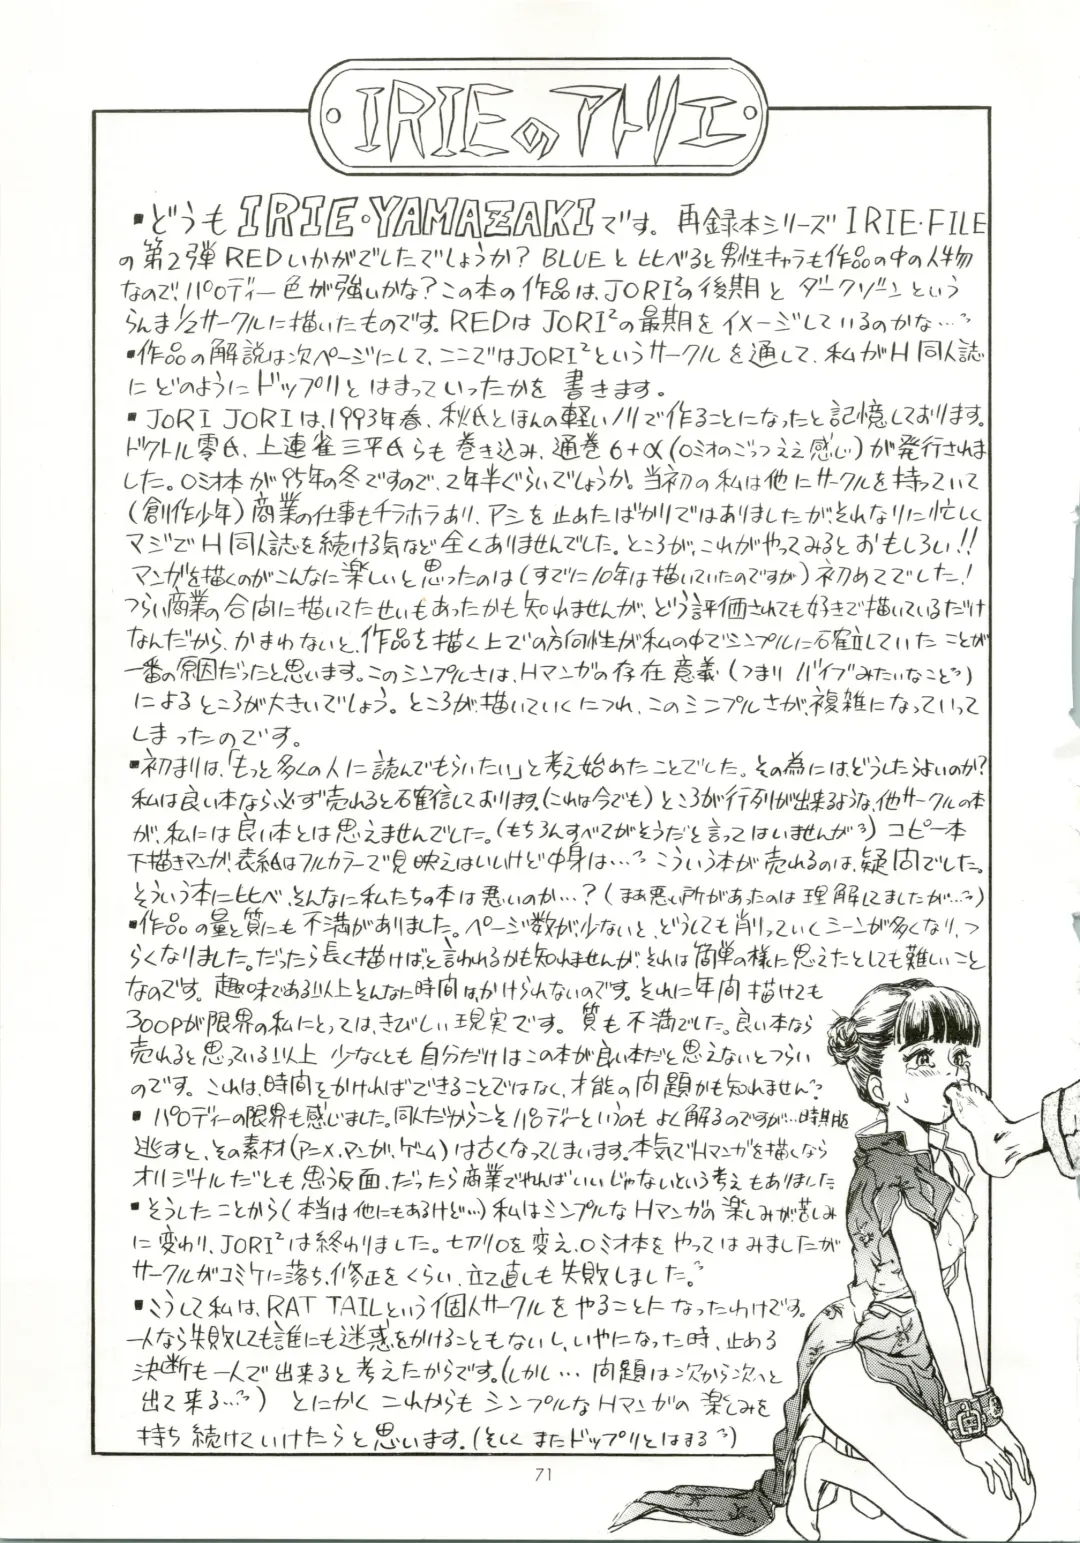 IRIEのアトリエ
▪どうもIRIE・YAMAZAKIです。再録本シリーズIRIE・FILE
の第2弾REDいかがでしたでしょうか?BLUEと比べると男性キャラも作品の中の人物
なので、パロディー色が強いかな?この本の作品は、JORI²の後期とダークゾーンという
らんま½サークルに描いたものです。REDはJORI²の最期をイメージしているのかな…
▪作品の解説は次ページにして、ここではJORI²というサークルを通して、私がH同人誌
にどのようにドップリとはまっていったかを書きます。
▪JORI JORIは、1993年春、秋氏とほんの軽いノリで作ることになったと記憶しております。
ドクトル零氏、上連雀三平氏らも巻き込み、通巻6+α(ロミオのごっつええ感じ)が発行されま
した。ロミオ本が95年の冬ですので、2年半ぐらいでしょうか。当初の私は他にサークルを持っていて
(創作少年)商業の仕事もチラホラあり、アシを止めたばかりではありましたが、それなりに忙しく
マジでH同人誌を続ける気など全くありませんでした。ところが、これがやってみるとおもしろい!!
マンガを描くのがこんなに楽しいと思ったのは(すでに10年は描いていたのですが)初めてでした!
つらい商業の合間に描いてたせいもあったかも知れませんが、どう評価されても好きで描いているだけ
なんだから、かまわないと、作品を描く上での方向性が私の中でシンプルに確立していたことが
一番の原因だったと思います。このシンプルさは、Hマンガの存在意義(つまりバイブみたいなこと)
によるところが大きいでしょう。ところが、描いていくにつれ、このシンプルさが、複雑になっていって
しまったのです。
▪初まりは、「もっと多くの人に読んでもらいたい」と考え始めたことでした。その為には、どうしたらよいのか?
私は良い本なら必ず売れると確信しております。(これは今でも)ところが行列が出来るような、他サークルの本
が、私には良い本とは思えませんでした。(もちろんすべてがそうだと言ってはいませんが)コピー本
下描きマンガ、表紙はフルカラーで見映えはいいけど中身は…こういう本が売れるのは、疑問でした。
そういう本に比べ、そんなに私たちの本は悪いのか…?(まあ悪い所があったのは理解してましたが…)
▪作品の量と質にも不満がありました。ページ数が少ないと、どうしても削っていくシーンが多くなり、つ
らくなりました。だったら長く描けば、と言われるかも知れませんが、それは簡単の様に思えたとしても難しいこと
なのです。趣味である以上そんなに時間は、かけられないのです。それに年間描けても
300Pが限界の私にとっては、きびしい現実です。質も不満でした。良い本なら
売れると思っている以上少なくとも自分だけはこの本が良い本だと思えないとつらい
のです。これは、時間をかければできることではなく、才能の問題かも知れません
▪パロディーの限界も感じました。同人だからこそパロディーというのもよく解るのですが…時期
逃すと、その素材(アニメ、マンガ、ゲーム)は古くなってしまいます。本気でHマンガを描くなら
オリジナルだとも思う反面、だったら商業でやればいいじゃないという考えもありました
▪そうしたことから(本当は他にもあるけど…)私はシンプルなHマンガの楽しみが苦しみ
に変わり、JORI²は終わりました。七刀ロを変え、ロミオ本をやってはみましたが
サークルがコミケに落ち、修正をくらい、立て直しも失敗しました。
▪こうして私は、RAT TAILという個人サークルをやることになったわけです。
一人なら失敗しても誰にも迷惑をかけることもないし、いやになった時、止める
決断も一人で出来ると考えたからです。(しかし…問題は次から次へと
出て来る…)とにかくこれからもシンプルなHマンガの楽しみを
持ち続けていけたらと思います。(そしてまたドップリとはまる)
71